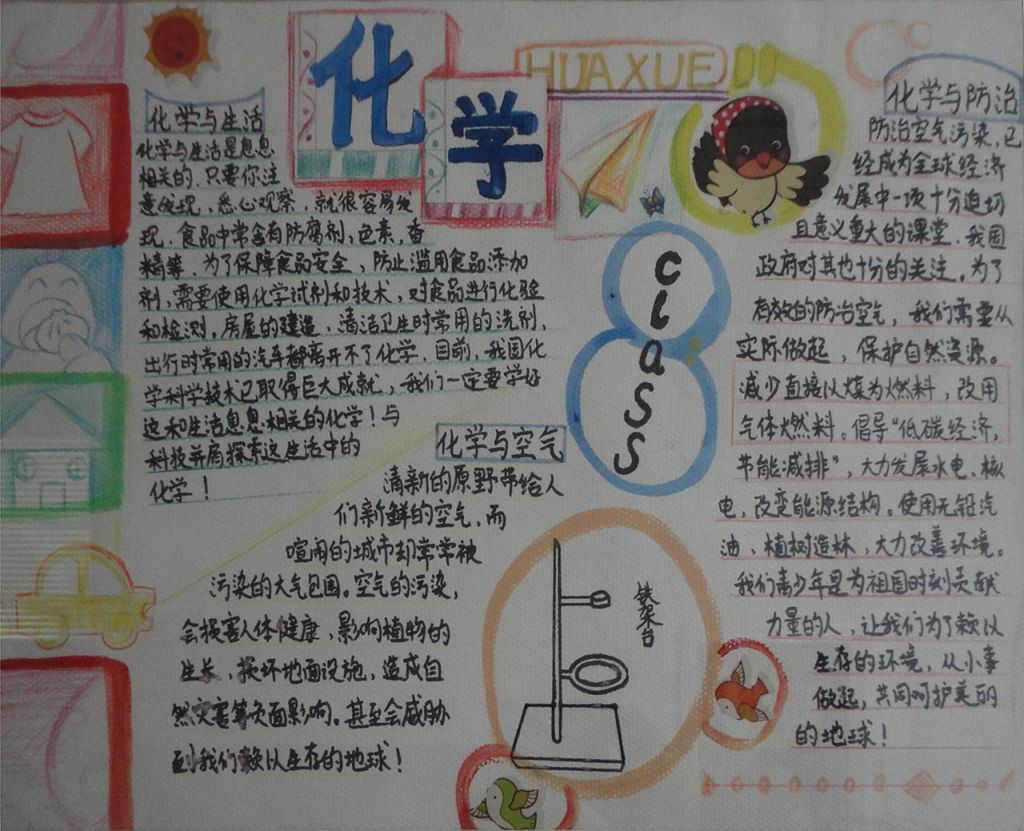 化学
HUAXUE
化学与生活
化学与生活是息息
相关的,只要你注
意发现,悉心观察,就很容易发
现,食品中常含有防腐剂,色素,香
精等,为了保障食品安全,防止滥用食品添加
剂,需要使用化学试剂和技术,对食品进行化验
和检测,房屋的建造,清洁卫生时常用的洗剂,
出行时常用的汽车都离开不了化学,目前,我国化
学科学技术已取得巨大成就,我们一定要学好
这和生活息息相关的化学!与
科技并肩探索这生活中的
化学!
化学与空气
清新的原野带给人
们新鲜的空气,而
喧闹的城市却常常被
污染的大气包围。空气的污染,
会损害人体健康,影响植物的
生长,损坏地面设施,造成自
然灾害等负面影响。甚至会威胁
到我们赖以生存的地球!
class
铁架台
化学与防治
防治空气污染,已
经成为全球经济
发展中一项十分迫切
且意义重大的课堂,我国
政府对其也十分的关注。为了
有效的防治空气,我们需要从
实际做起,保护自然资源。
减少直接以煤为燃料,改用
气体燃料。倡导“低碳经济,
节能减排”,大力发展水电、核
电,改变能源结构。使用无铅汽
油,植树造林,大力改善环境。
我们青少年是为祖国时刻贡献
力量的人,让我们为了赖以
生存的环境,从小事
做起,共同呵护美丽
的地球!